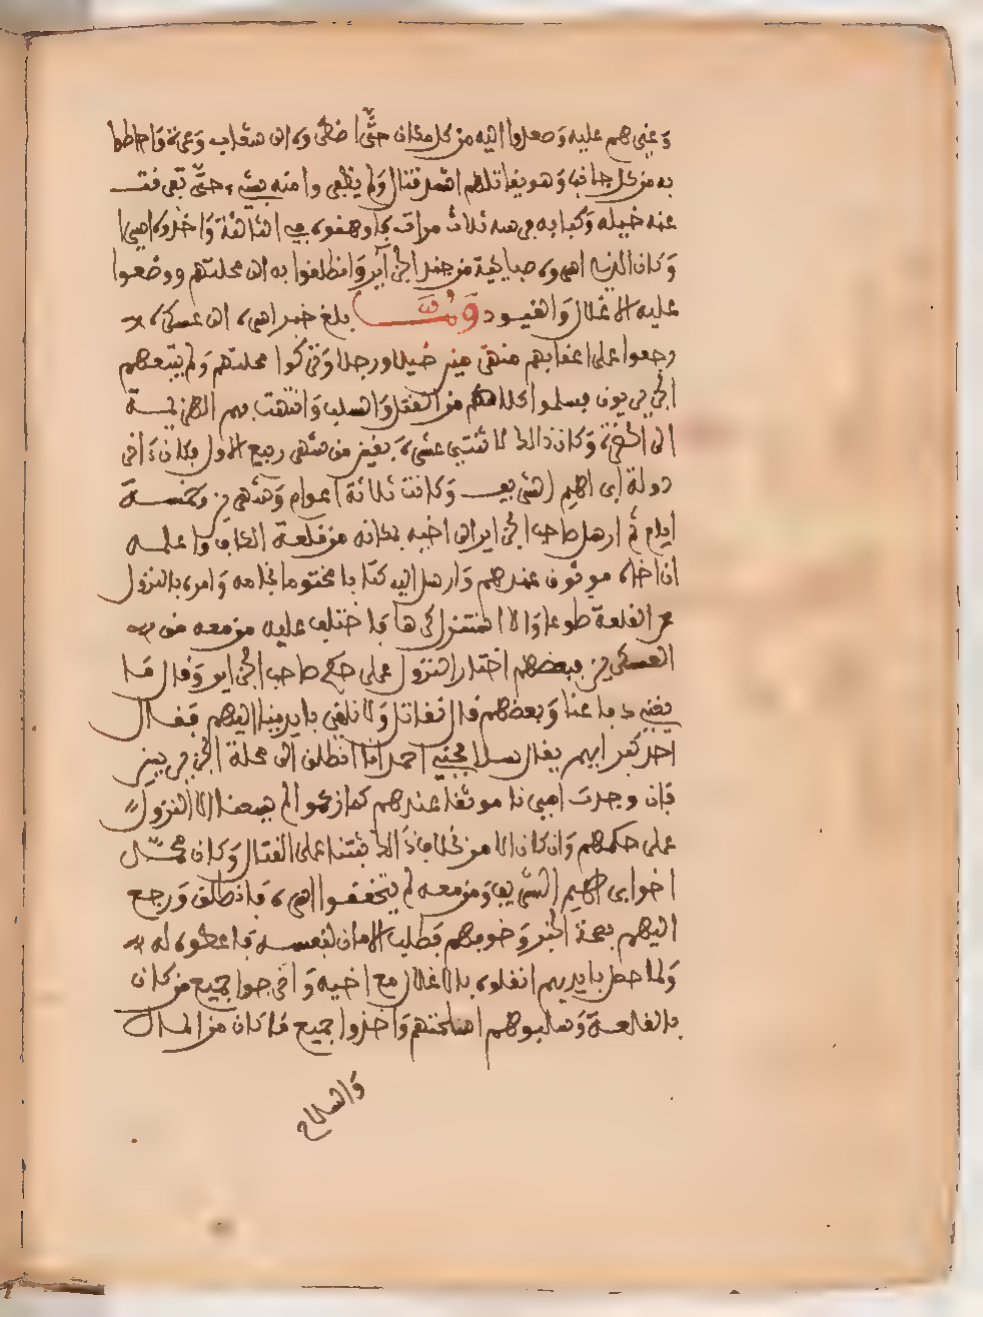 وعيرهم عليه وصعدوا اليه من كل مكان حتى اضطروه الى شعاب وعرة واحاطوا
به من كل جانب وهو يقاتلهم اشد قتال ولم يظفروا منه بشيء حتى تعرفت
عنه خيله وكبا به فرسه ثلاث مرات فادهفوه في الثالثة واخذوه اسيرا
وكان الذين اسروه صبايحية من جند الجزاير وانطلقوا به الى محلتهم ووضعوا
عليه الاغلال والقيود ولما بلغ خبر اسره الى عسكره
رجعوا على اعقابهم منهزمين خيلا ورجلا وتركوا محلتهم ولم يتبعهم
الجزيريون فسلموا كلهم من القتل والسلب وانتهت بهم الهزيمة
الى الحضرة وكان ذالك لاثنتي عشرة بقين من شهر ربيع الاول فكان ذا اخر
دولة ابراهيم الشريف وكانت ثلاثة اعوام وشهرين وخمسة
ايام ثم ارسل صاحب الجزاير الى اخيه بمكانه من قلعة الكاف واعلمه
ان اخاه موثوق عندهم وارسل اليه كتابا مختوما بخاتمه وامره بالنزول
عن القلعة طوعا والا استنزل كرها فاختلف عليه من معه من
العسكريين فبعضهم اختار النزول على حكم صاحب الجزاير وقال ما
يغني دفاعنا وبعضهم قال نقاتل ولا نلقي بايدينا اليهم فقال
احد كبرايهم يقال له احمد انا انطلق الى محلة الجزيريين
فان وجدت اميرنا موثقا عندهم كما زعموا لم يسعنا الا النزول
على حكمهم وان كان الامر بخلاف ذالك ثبتنا على القتال وكان محمد
اخو ابراهيم الشريف ومن معه لم يتحققوا اسره فانطلق ورجع
اليهم بصحة الخبر وخوفهم فطلب الامان لنفسه فاعطوه له
ولما حصل بايديهم اثقلوه بالاغلال مع اخيه واخرجوا جميع من كان
بالقلعة وسلبوهم اسلحتهم واخذوا جميع ما كان من المال
والسلاح